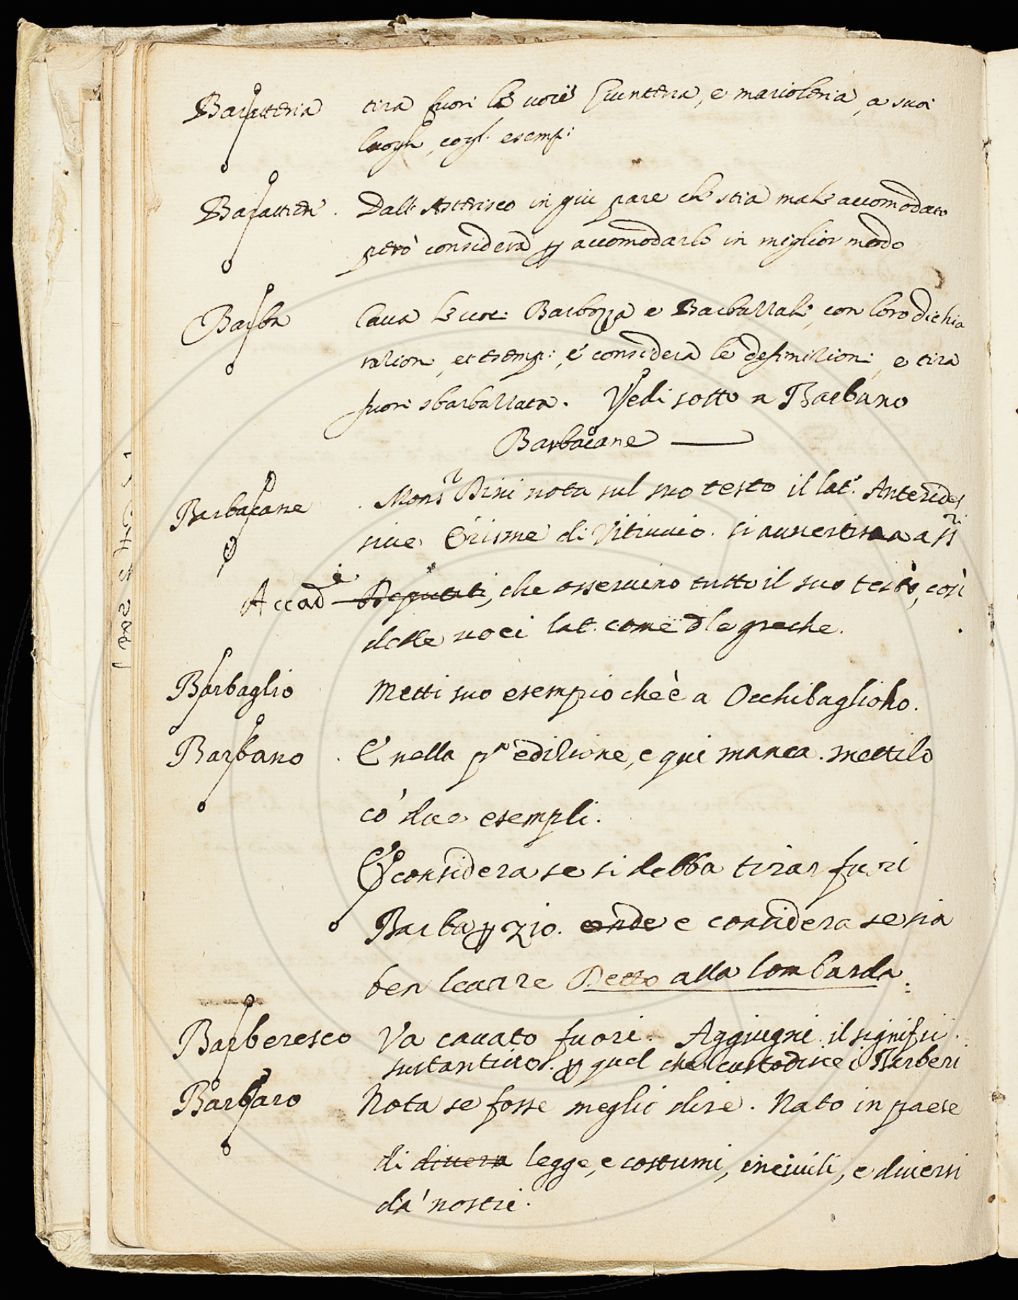 Baratteria tira fuori le voci Giunteria, e marioleria, a suoi
luoghi, cogl. esempi
Barattiere . Dall' Asterisco in giu pare che stia male accomodato
però considera p accomodarlo in miglior modo
Barba Cava le voci Barbozza e Barbazzale, con loro dichia
razioni, et esempi, e considera le definizioni, e tira
fuori sbarbazzata. Vedi sotto a Barbano
Barbacane
Barbacane . Mons.r Dini nota sul suo testo il lat. Anterides
sive Erisme di Vitruvio. si avvertisca a SS.ri
Accad.ci Deputati, che osservino tutto il suo testo, così
delle voci lat. come d le greche.
Barbaglio Metti suo esempio che è a Occhibagliolo.
Barbano . È nella p.a edizione, e qui manca. mettilo
cō due esempli.
E considera se si debba tirar fuori
Barba p zio. onde e considera se sia
ben levare Detto alla lombarda.
Barberesco Va cavato fuori. Aggiugni il signifi.
sustantivo. p quel che custodisce i Barberi
Barbaro Nota se fosse meglio dire. Nato in paese
di diversa legge, e costumi, incivili, e diversi
da' nostri.